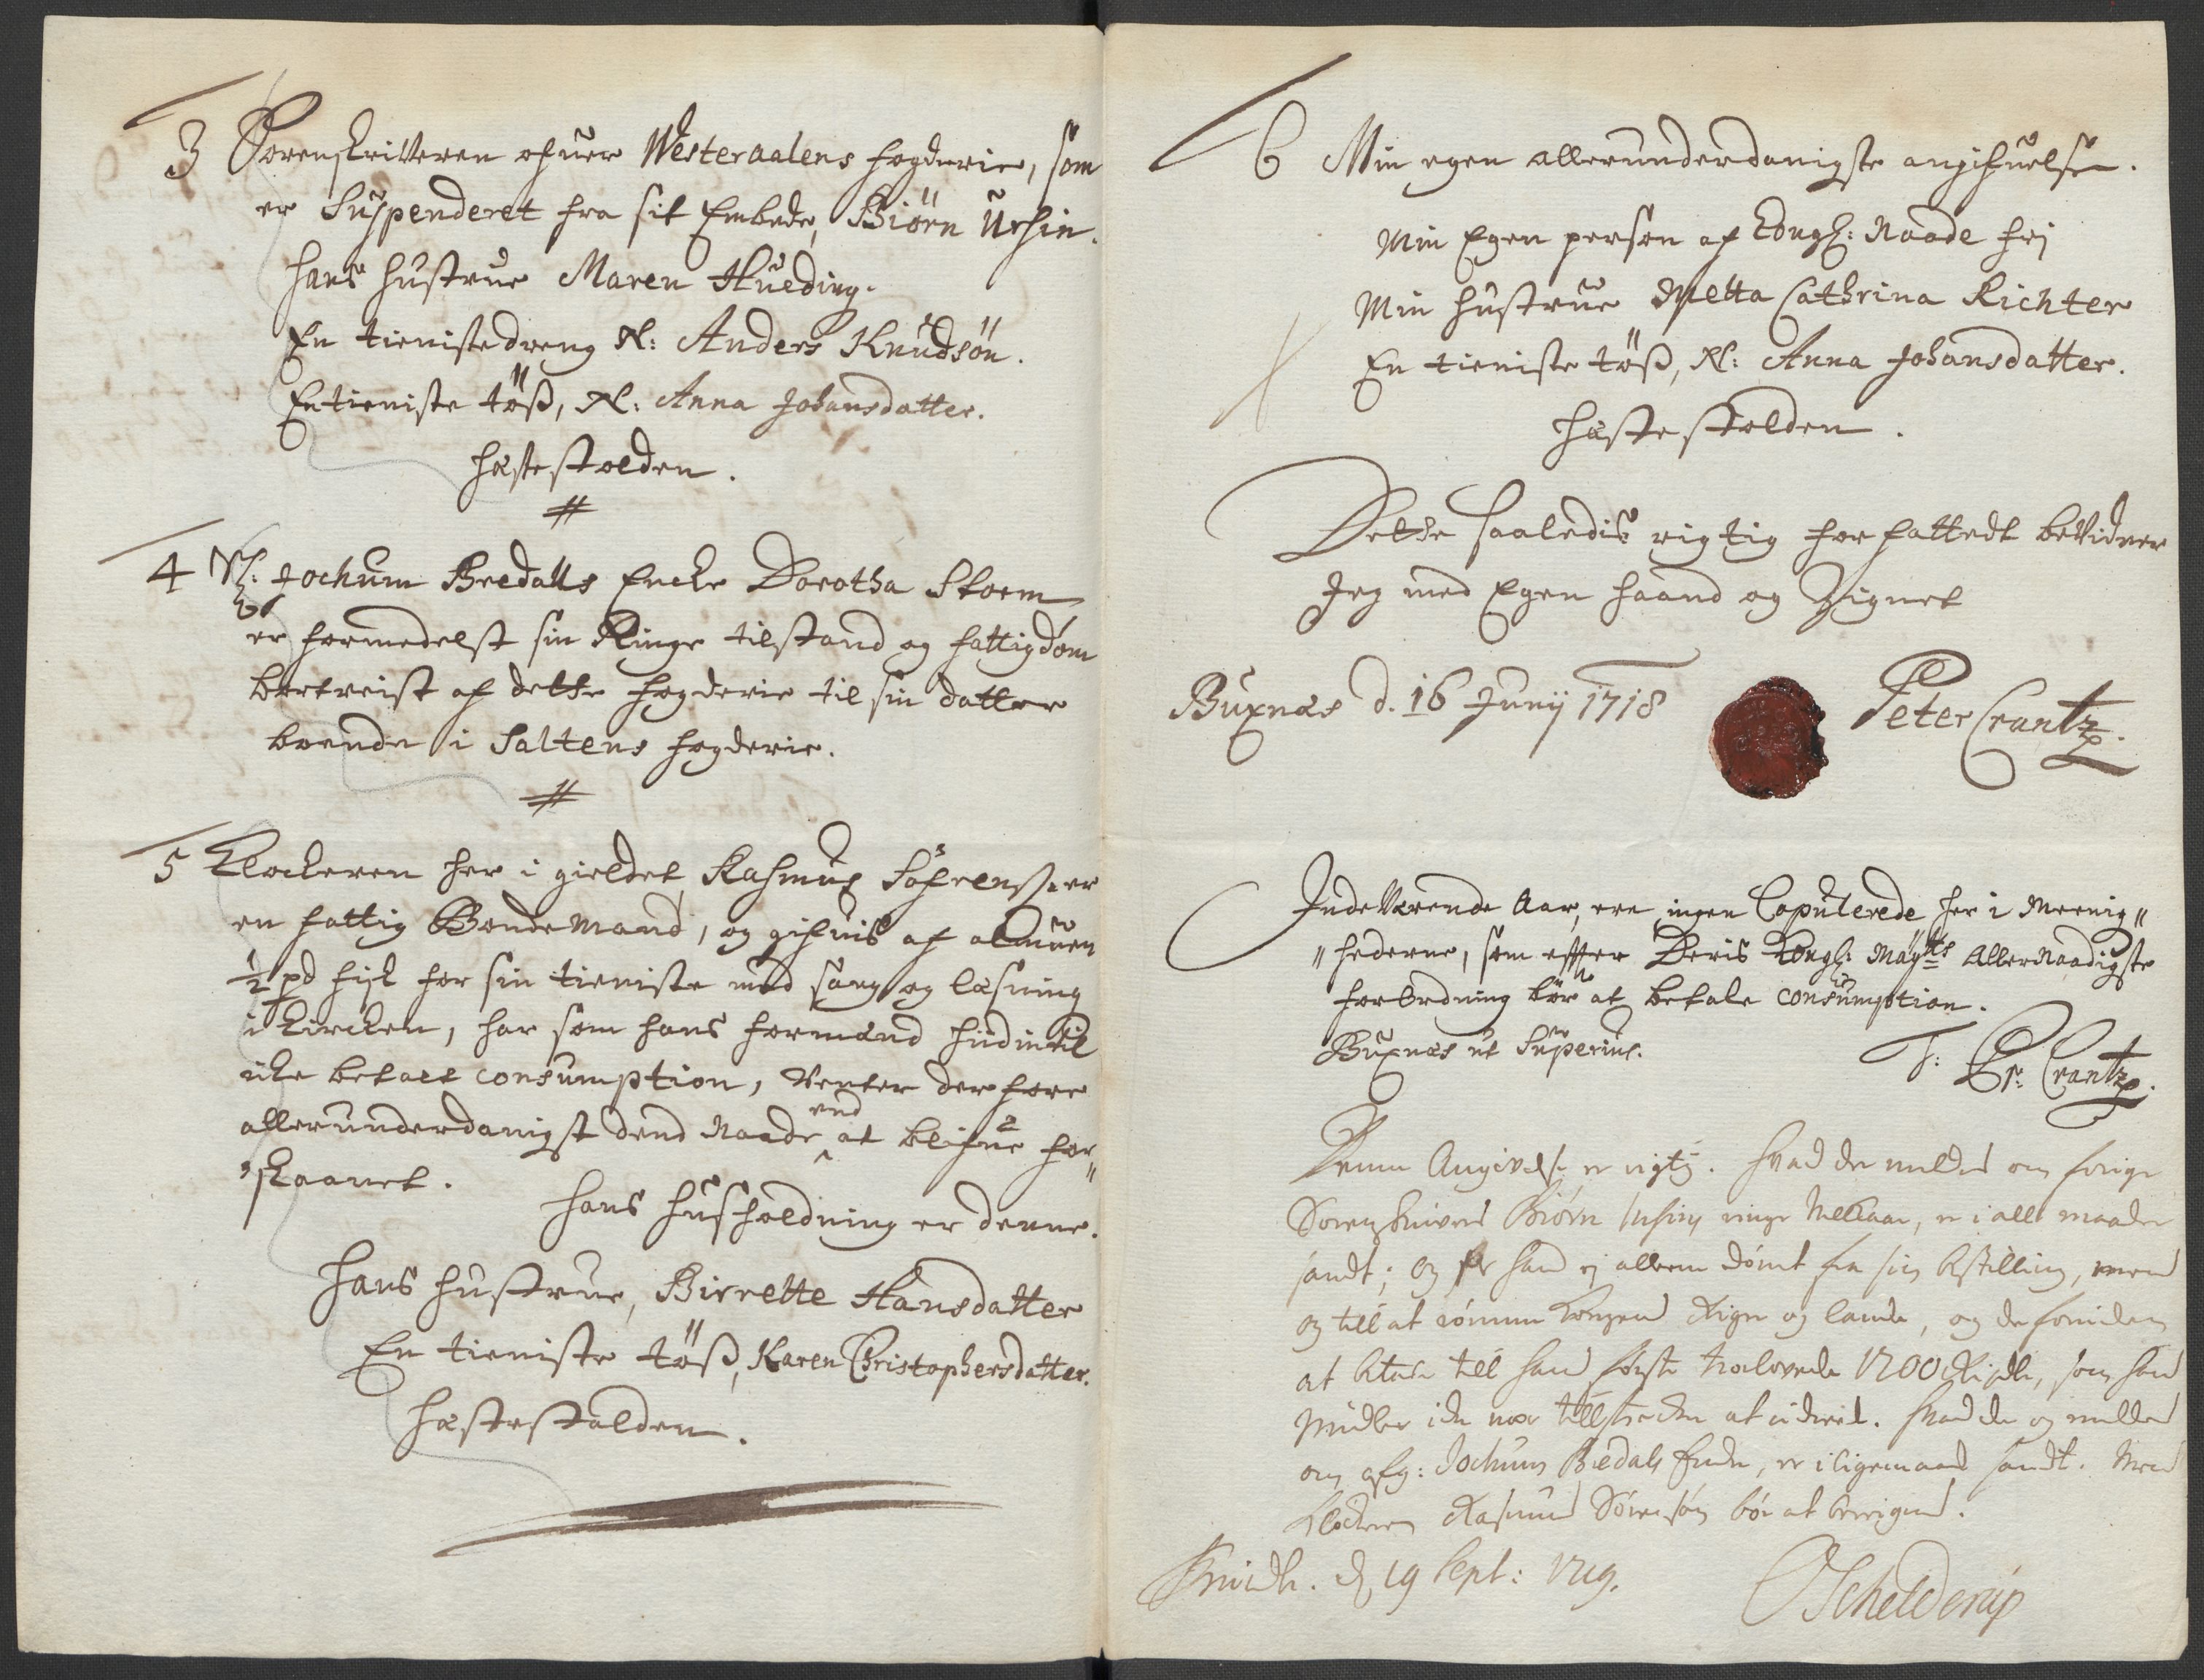 3 Sorenskriveren ofuer Westeraalens fogderie, som
er Suspenderet fra sit Embede, Biörn Ursin.
hans hustrue Maren Hueding.
En tienistedreng N: Anders Knudsön.
En tieniste töß, N: Anna Johansdatter.
hæstestolden.
4 Sl: Jochum Bredalls Encke Dorotha Storm
er formedelst sin Ringe tilstand og fattigdom
bortreist af dette fogderie til sin datter
boende i Saltens fogderie.
5 Klockeren her i gieldet Rasmus Söfrens: er
en fattig Bonde Mand, og gifuis af almuen
1/2 pd fisk for sin tieniste med sang og læsning
i Kircken, har som hans formænd hiidindtil
icke betalt consumption, Venter der fore
allerunderdanigst dend Naade end at blifue for"
"skaanet.
hans huusholdning er denne.
hans hustrue, Birrette Hansdatter
En tieniste töß, Karen Christophersdatter.
hæstestolden.
6 Min egen allerunderdanigste angifuelse.
Min Egen person af Kongl: Naade frj
Min hustrue Metta Cathrina Richter
En tieniste töß, N: Anna Johansdatter.
hæstestolden.
Dette saaledis rigtig forfattedt beVidner
Jeg med Egen haand og Zignet
Buxnæs d. 16 Junij 1718
Peter Crantz.
IndeVærende Aar, ere ingen Copulerede her i Meenig"
"hederne, som effter Deris Kongl: Mayts AllerNaadigste
forOrdning bör at betale consumption.
Buxnæs ut Superius.
Pr: Crantz.
Denne Angivelse er rigtig. hvad der meldes om forige
Sorenskrivers Biørn Ursins ringe Velkaar, er i alle maader
sandt; og er hand ej alleene dömt fra sin bestilling, men
og till at römme kongens Riger og lande, og desforuden
at betale till hans förste trolovede 1200 Rixdlr, som hans
Midler icke var tillstrecken at udreed. hvad der og melded
om afg: Jochum Bredals Encke, er i ligemaade sandt. Men
Klockeren Rasmus Sörensön bör at
d. 19 Sept: 1719.
O Schelderup